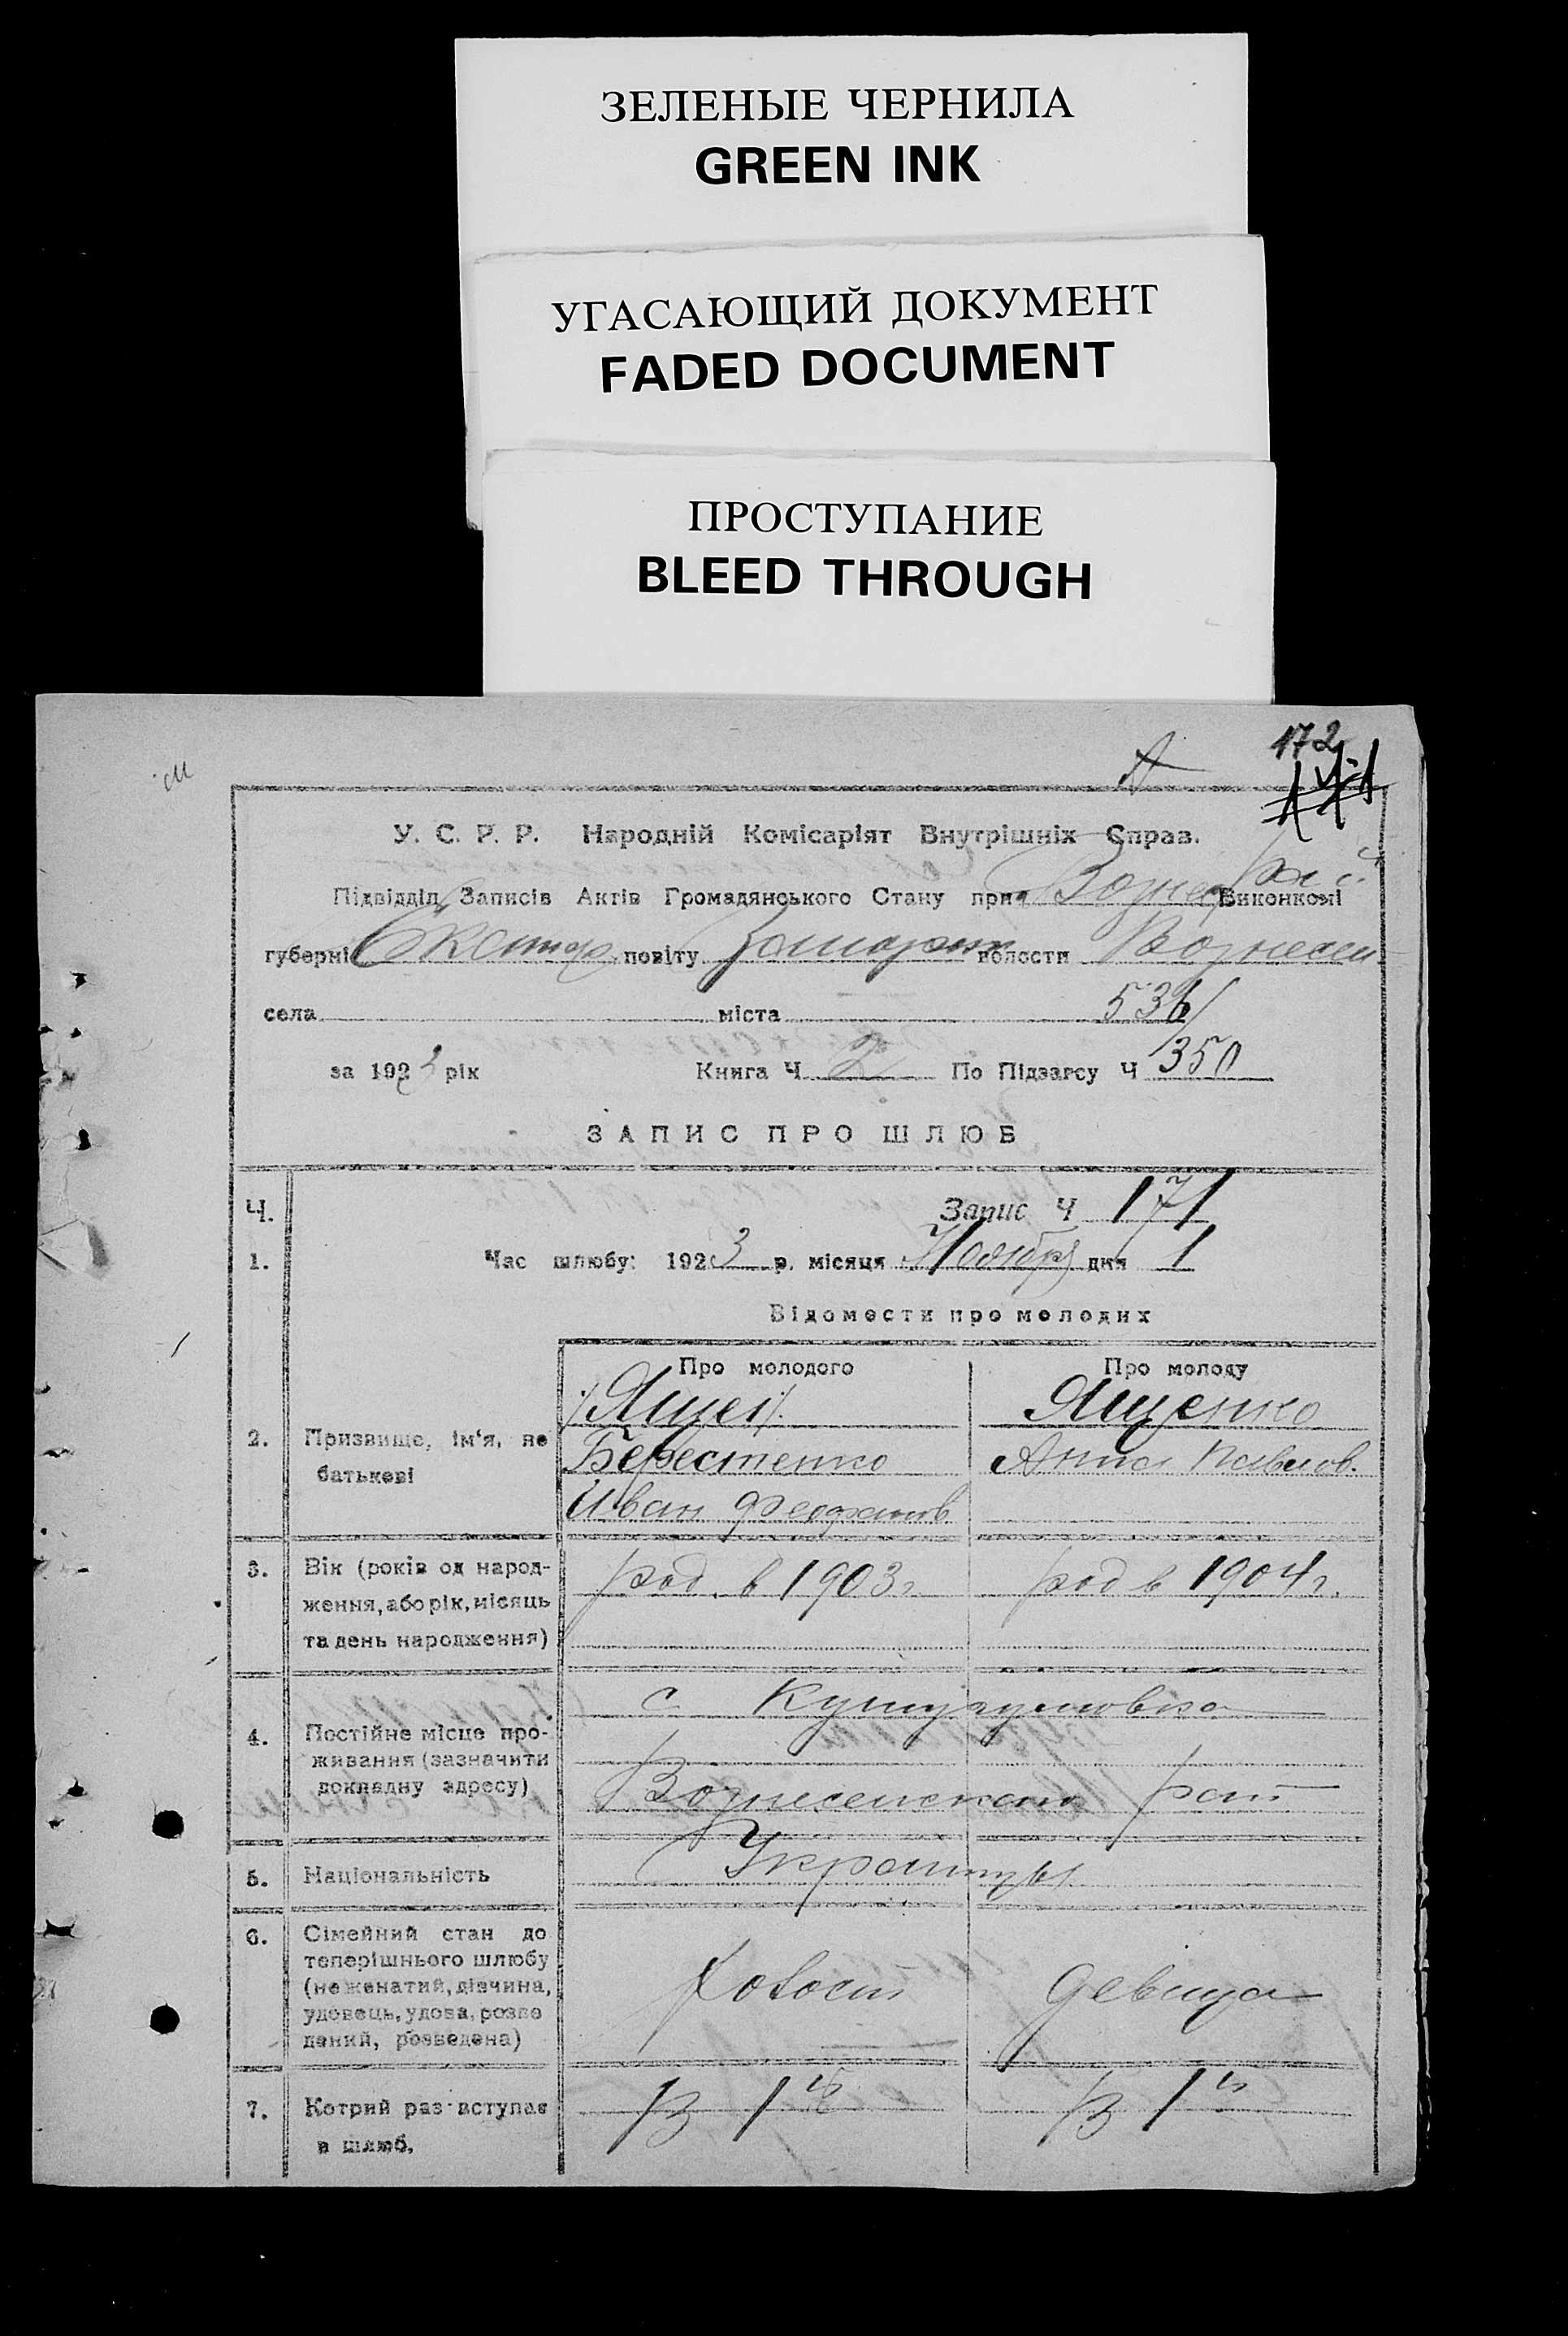 ЗЕЛЕНЫЕ ЧЕРНИЛА
GREEN INK
УГАСАЮЩИЙ ДОКУМЕНТ
FADED DOCUMENT
ПРОСТУПАНИЕ
BLEED THROUGH
172
У. С. Р. Р. Народній Комісаріят Внутрішніх Справ.
Підвідділ Записів Актів Громадянського Стану при Вознес Виконкомі
губерні Екатер повіту Запорож волости Вознесен
села міста 536/
за 1923 рік Книга Ч 2 По Підзагсу Ч 350
ЗАПИС ПРО ШЛЮБ
Ч. Запис Ч 171
1. Час шлюбу: 1923 р. місяця Ноября дня 1
Відомости про молодих
Про молодого Про молоду
Ященко
2. Призвище, ім'я, по Берестенко Анна Павлов.
батькові
Иван Феофанов
3. Вік (років од народ- род. в 1903 г. род в 1904 г.
ження, або рік, місяць
та день народження)
с Кушугумовка
4. Постійне місце про-
живання (зазначити
докладну адресу) Вознесенского рай
5. Національність Украинцы
6. Сімейний стан до
теперішнього шлюбу
(не женатий, дівчина, холост девица
удовець, удова, розве
дений, розведена)
7. Котрий раз вступає в 1й в 1й
в шлюб.